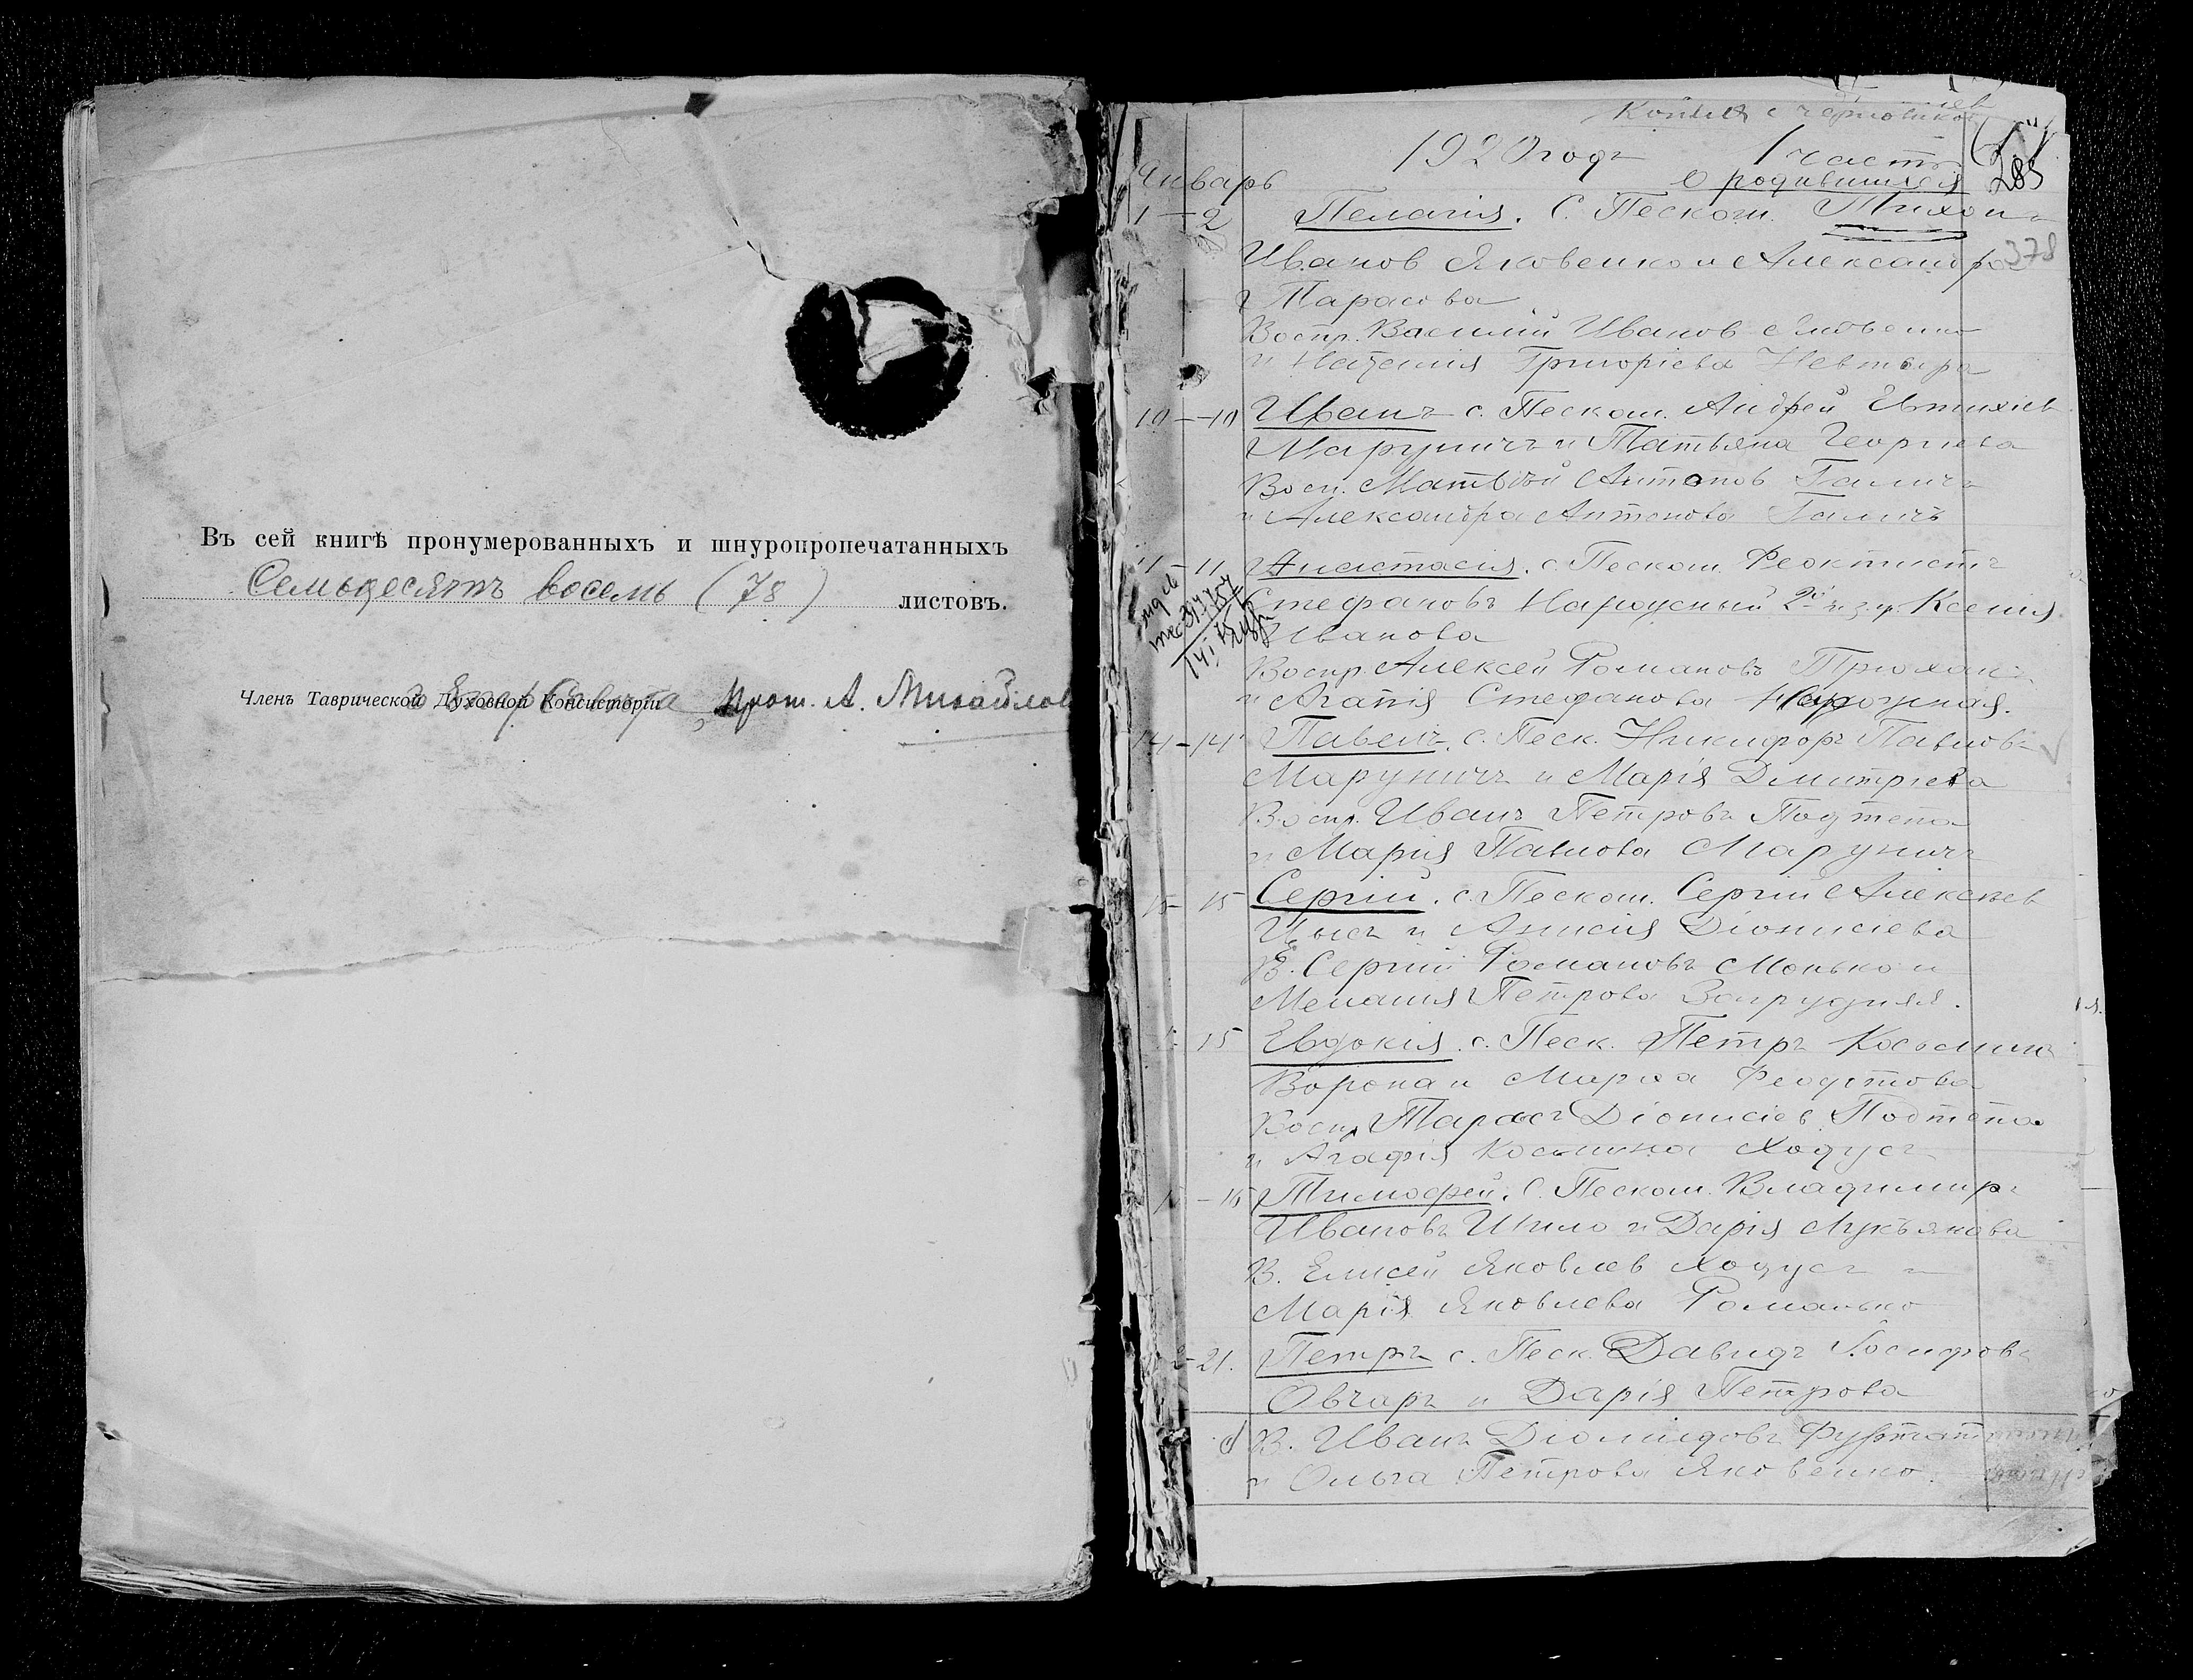 Въ сей книгѣ пронумерованныхъ и шнуропропечатанныхъ
Семьдесятъ восемь (78) листовъ.
Членъ Таврической Духовной Консисторіи Прот. А. Михайлов
Копия с черновиков
1920 годъ 1 часть
285
Январь О родившихся
1-2 Пелагія. С. Пескош. Тихонъ
378
Иванов Яковенко и Александра
Тарасова
Воспр. Василій Иванов Яковенко
и Наталія Григоріева Невтыра
10-10 Иванъ с. Пескош. Андрей Евтихіев
Маруничъ и Татьяна Георгіева
Восп. Матвѣй Антонов Галичъ
и Александра Антонова Галичъ
11-11 Анастасія. с. Пескош. Феоктистъ
Стефановъ Нарожный Ксенія
Иванова
Воспр. Алексей Романовъ
и Агапія Стефанова Нарожная.
14-14 Павелъ. с. Песк. Никифоръ Павловъ
Маруничъ и Марія Дмитріева
Воспр. Иванъ Петровъ Подтепа
и Марія Павлова Маруничъ
15-15 Сергій. с. Пескош. Сергій Алексѣев
и Анисія Діонисіева
В. Сергій Романовъ Монько и
Меланія Петрова Запрудняя.
15 Евдокія. с. Песк. Петръ Косьминъ
Ворона и Марѳа Феодотова
Воспр. Тарасъ Діонисіев Подтепа
и Агафія Косьмина Ходусъ
Тимофей. С. Пескош. Владимиръ
Ивановъ Шило и Дарія Лукьянова
В. Елисей Яковлев Ходусъ и
Марія Яковлева Романько
21. Петръ с. Песк. Давидъ Іосифовъ
Овчаръ и Дарія Петрова
В. Иванъ Діомидовъ
и Ольга Петрова Яковенко.